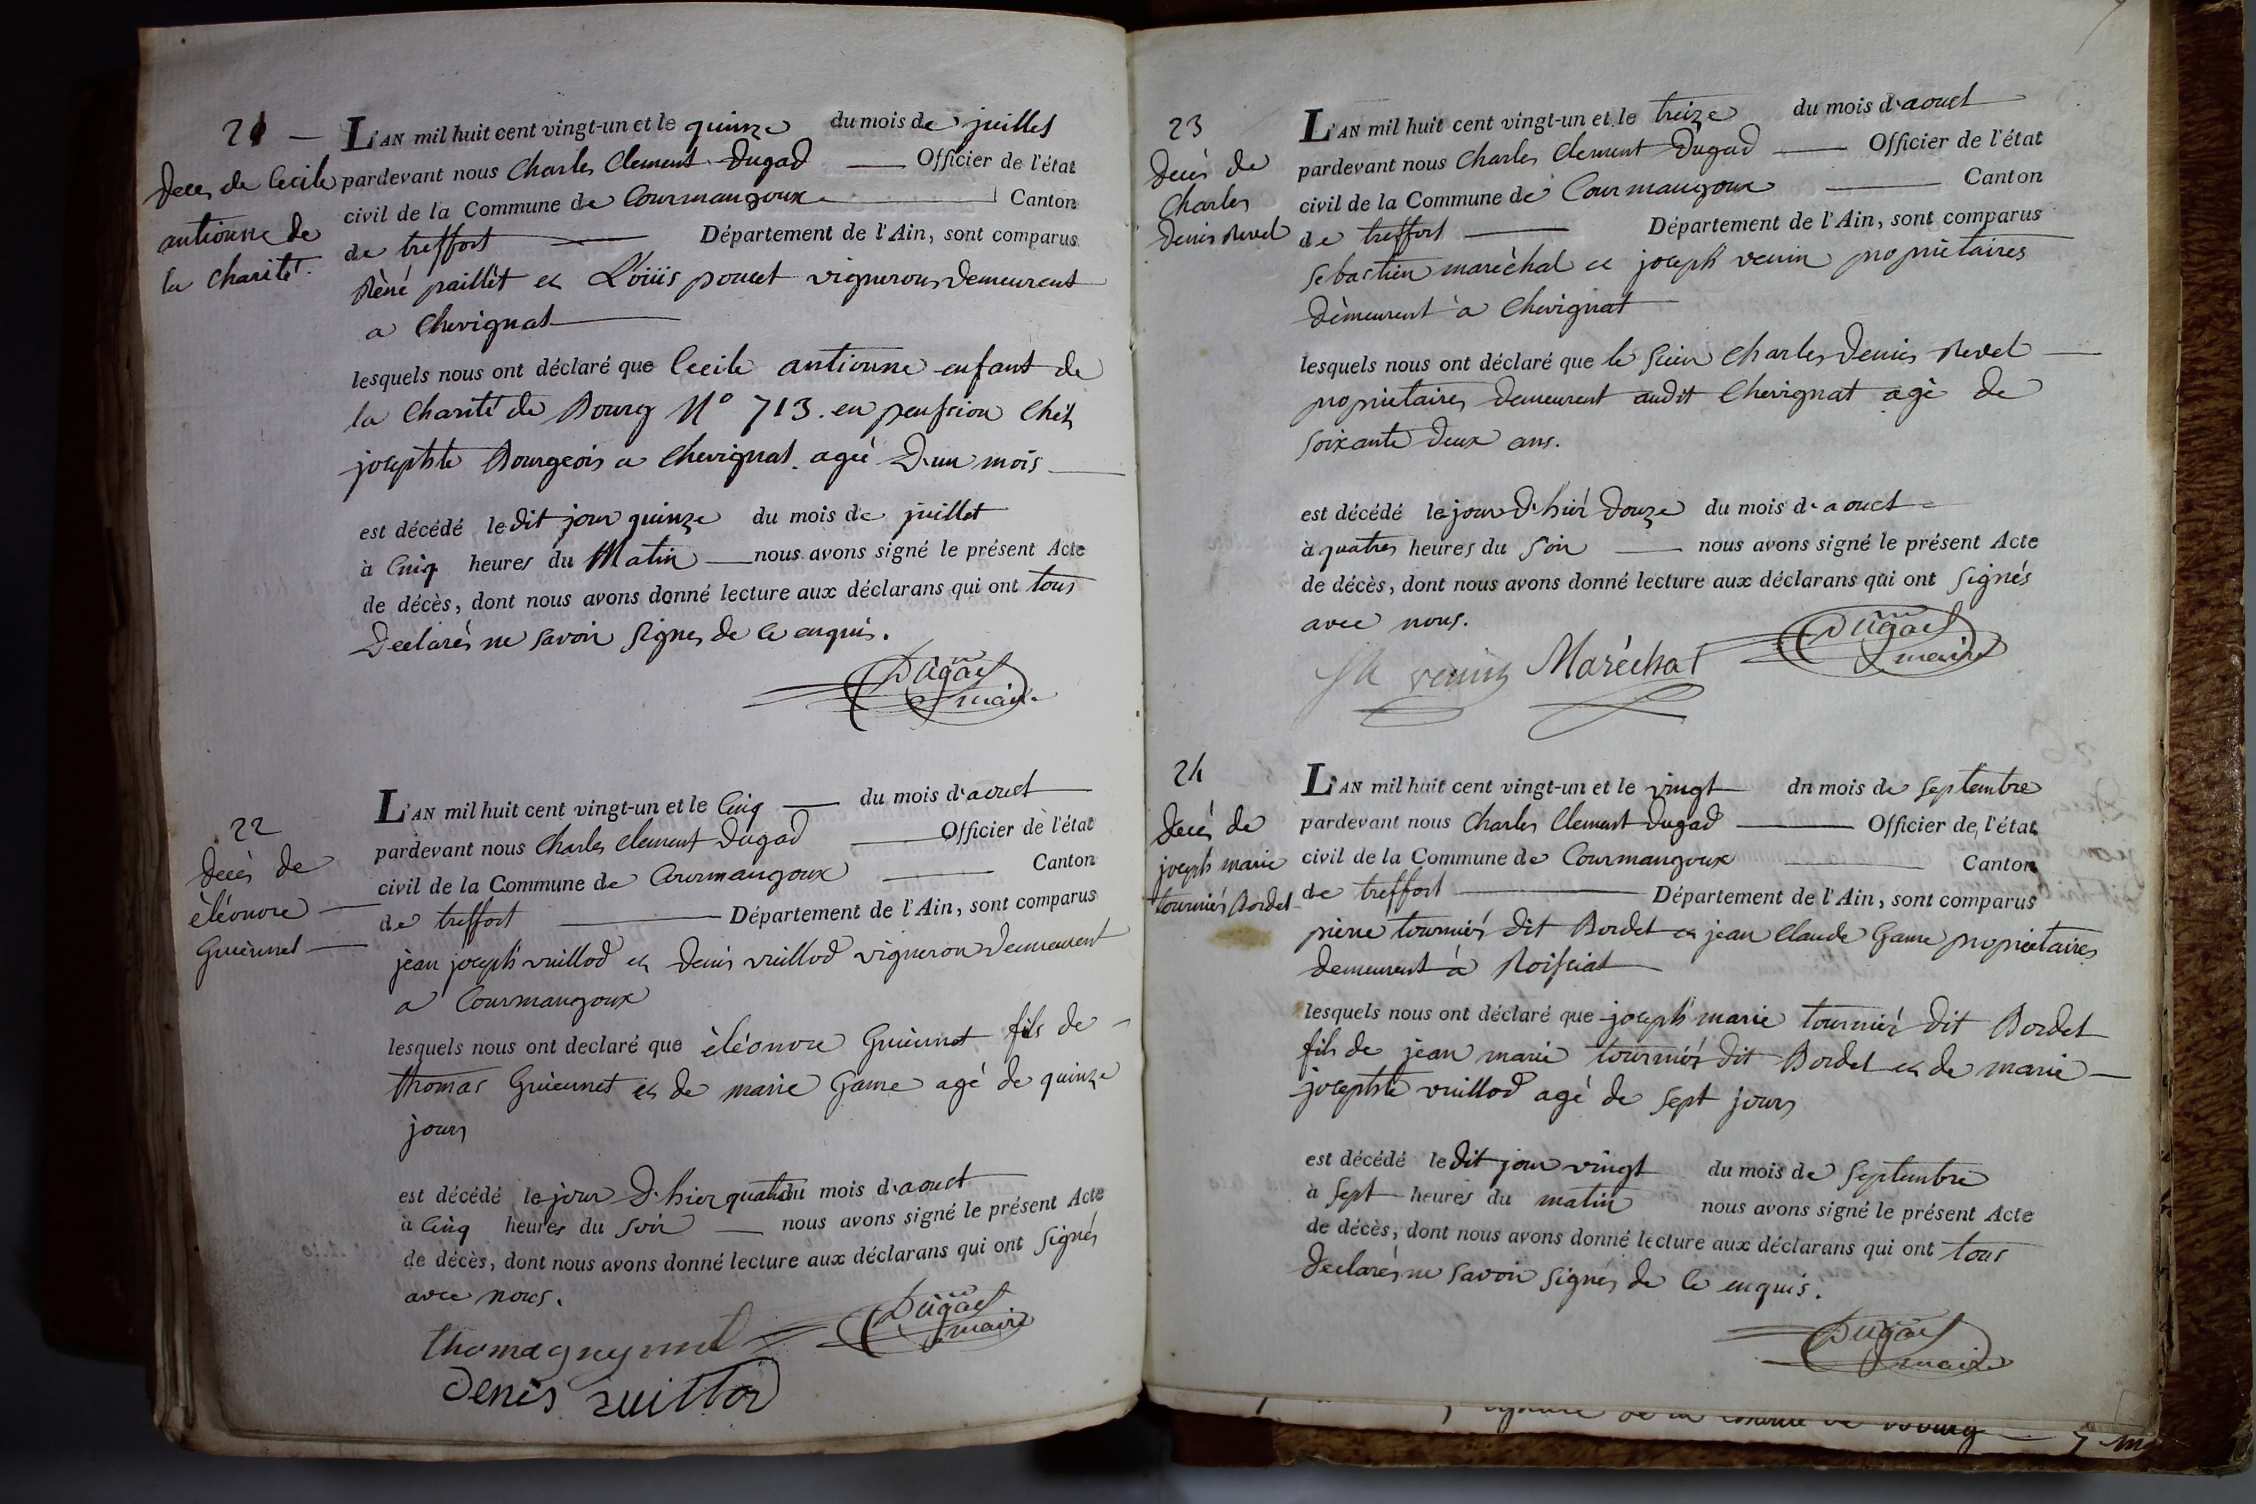 21 —
Deces de Cecile
antionne de
la Charité.
L'AN mil huit cent vingt-un et le quinze du mois de juillet
pardevant nous Charles Clement Dugad Officier de l'état
civil de la Commune de Courmangoux Canton
de treffort Département de l'Ain, sont comparus
Rèné paillèt et Loüis poncet vignerons demeurent
a Chevignat
lesquels nous ont déclaré que Cecile antionne enfant de
la Charité de Bourg N° 713. en penssion Chéz
josephte Bourgeois a Chevignat. agée D'un mois
est décédé le dit jour quinze du mois de juillet
à Cinq heures du Matin nous avons signé le présent Acte
de décès, dont nous avons donné lecture aux déclarans qui ont tous
Declarés ne savoir signes de ce enquis.
Dugad
maire
22
Decès de
èléonore
Guiennet
L'AN mil huit cent vingt-un et le Cinq du mois d'aouct
pardevant nous Charles Clement Dugad Officier de l'état
civil de la Commune de Courmangoux Canton
de treffort Département de l'Ain, sont comparus
jean joseph vuillod et Denis vuillod vigneron Demeurent
a Courmangoux
lesquels nous ont declaré que èléonore Guiennet fils de
thomas Guiennet et de marie Game agé de quinze
jours
est décédé le jour D'hier quatre du mois d'aouct
à Cinq heures du soir nous avons signé le présent Acte
de décès, dont nous avons donné lecture aux déclarans qui ont signés
avec nous.
Dugad
maire
Denis vuillod
23
Decès de
Charles
Denis Revel
L'AN mil huit cent vingt-un et le treize du mois d'aouct
pardevant nous Charles Clement Dugad Officier de l'état
civil de la Commune de Courmangoux Canton
de treffort Département de l'Ain, sont comparus
Sebastien maréchal et joseph venin propriètaires
dèmeurent à Chevignat
lesquels nous ont déclaré que le sieur Charles Denis Revel
propriètaires demeurent audit Chevignat agè de
soixante deux ans.
est décédé le jour d'hièr douze du mois d'aouct
à quatres heures du soir nous avons signé le présent Acte
de décès, dont nous avons donné lecture aux déclarans qui ont signés
avec nous.
venin Maréchal
Dugad
maire
24
Decès de
joseph marie
tourniér Bordet
L'AN mil huit cent vingt-un et le vingt du mois de septembre
pardevant nous Charles Clement Dugad Officier de l'état
civil de la Commune de Courmangoux Canton
de treffort Département de l'Ain, sont comparus
pierre tourniér dit Bordet et jean Claude Game propriètaires
demeurent à Roissiat
lesquels nous ont déclaré que joseph marie tourniér dit Bordet
fils de jean marie tourniér dit Bordet et de marie
josephte vuillod agé de sept jours
est décédé le dit jour vingt du mois de septembre
à sept heures du matin nous avons signé le présent Acte
de décès, dont nous avons donné lecture aux déclarans qui ont tous
declarés ne savoir signés de ce enquis.
Dugad
maire